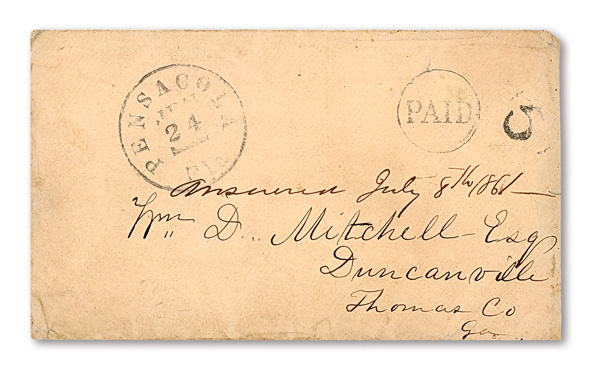 PENSACOLA Fla
24
PAID
5
answered July 8th 1861
Wm D. Mitchell Esq
Duncanville
Thomas Co
Geo